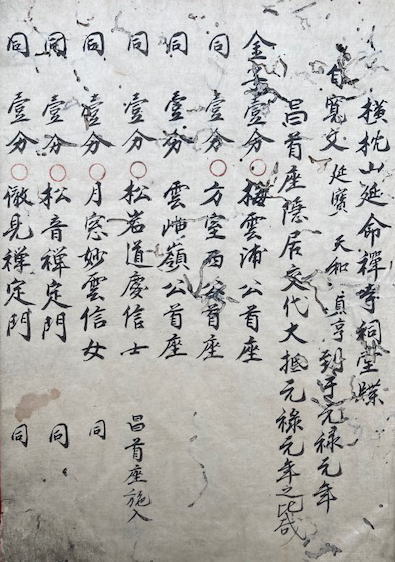 横枕山延命禪寺祠堂牒
自寛文 延寶 天和 貞享 到于元禄元年
昌首座隠居交代大抵元禄元年之比哉
金子壹分○梅雲浦公首座
同 壹分○方室西公首座
同 壹分 雲岫嶺公首座
同 壹分○松岩道慶信士 昌首座施入
同 壹分○月窓妙雲信女 同
同 壹分○松音禅定門 同
同 壹分○徹見禅定門 同